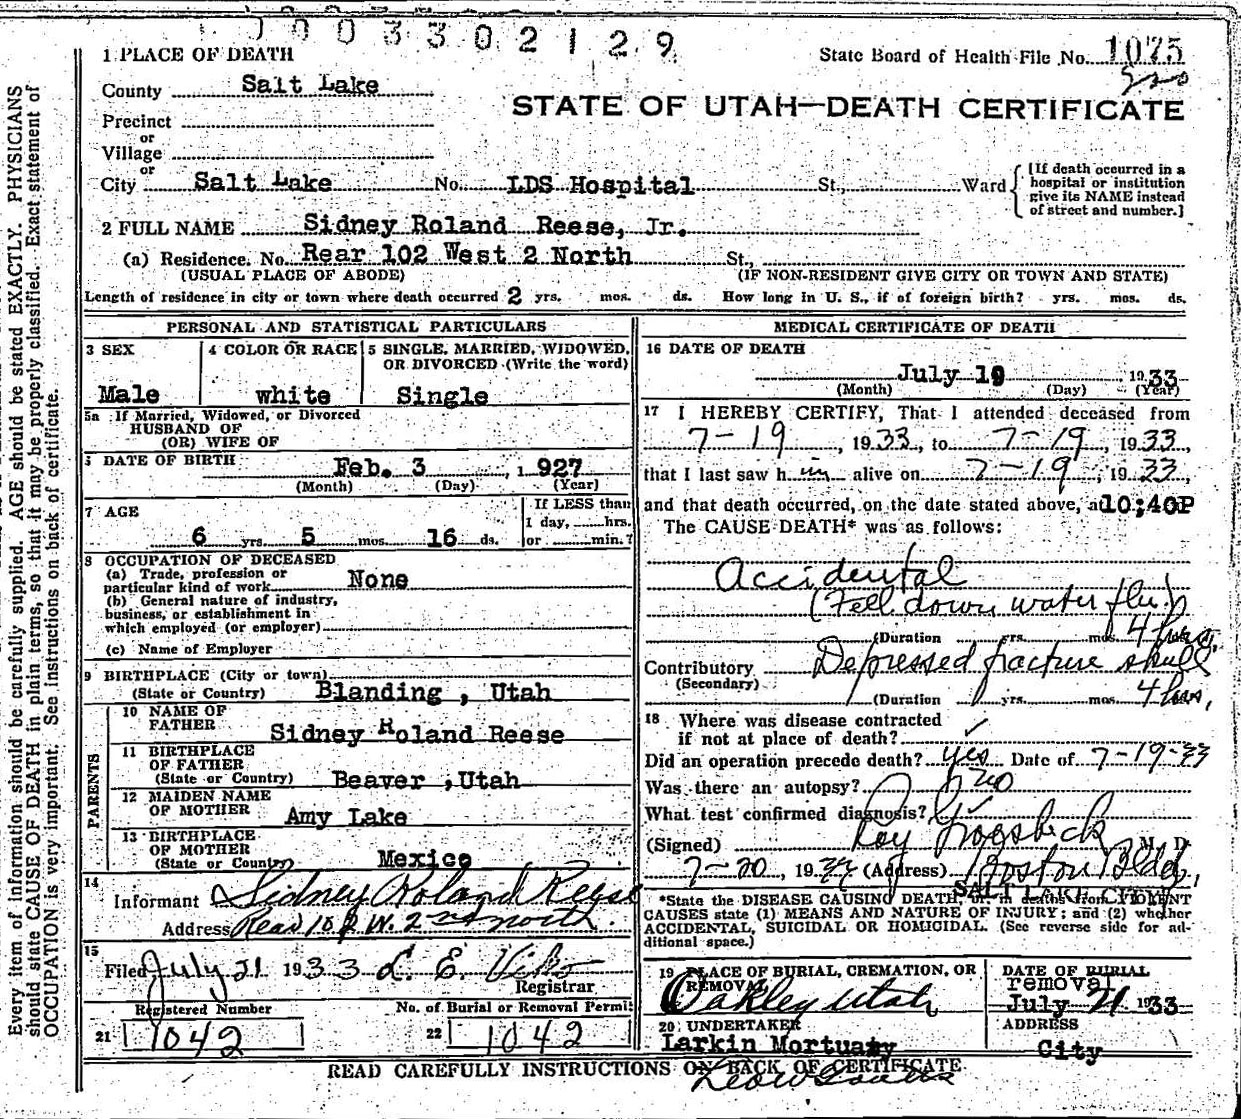 1003302129
1 PLACE OF DEATH
State Board of Health File No. 1075
County Salt Lake
STATE OF UTAH—DEATH CERTIFICATE
Precinct
or
Village
or
City Salt Lake No. LDS Hospital St., Ward
[If death occurred in a
hospital or institution
give its NAME instead
of street and number.]
2 FULL NAME Sidney Roland Reese, Jr.
(a) Residence. No. Rear 102 West 2 North St.,
(USUAL PLACE OF ABODE) (IF NON-RESIDENT GIVE CITY OR TOWN AND STATE)
Length of residence in city or town where death occurred 2 yrs. mos. ds. How long in U. S., if of foreign birth? yrs. mos. ds.
PERSONAL AND STATISTICAL PARTICULARS
3 SEX
Male
4 COLOR OR RACE
white
5 SINGLE, MARRIED, WIDOWED,
OR DIVORCED (Write the word)
Single
5a If Married, Widowed, or Divorced
HUSBAND OF
(OR) WIFE OF
DATE OF BIRTH Feb. 3, 1927
(Month) (Day) (Year)
7 AGE
6 yrs. 5 mos. 16 ds.
If LESS than
1 day, hrs.
or min.?
8 OCCUPATION OF DECEASED
(a) Trade, profession or
particular kind of work None
(b) General nature of industry,
business, or establishment in
which employed (or employer)
(c) Name of Employer
9 BIRTHPLACE (City or town)
(State or Country) Blanding, Utah
PARENTS
10 NAME OF
FATHER Sidney Roland Reese
11 BIRTHPLACE
OF FATHER
(State or Country) Beaver, Utah
12 MAIDEN NAME
OF MOTHER Amy Lake
13 BIRTHPLACE
OF MOTHER
(State or Country) Mexico
14
Informant Sidney Roland Reese
Address Rear 102 W. 2nd north.
15
Filed July 21 1933 L. E. Registrar
Registered Number
21 1042
No. of Burial or Removal Permit
22 1042
MEDICAL CERTIFICATE OF DEATH
16 DATE OF DEATH
July 19 1933
(Month) (Day) (Year)
17 I HEREBY CERTIFY, That I attended deceased from
7-19, 1933, to 7-19, 1933
that I last saw him alive on 7-19, 1933,
and that death occurred, on the date stated above, at 10;40P
The CAUSE DEATH* was as follows:
Accidental
(Fell down water
(Duration yrs. mos. 4 hours.
Contributory Depressed fracture skull
(Secondary)
(Duration yrs. mos. 4 hours,
18 Where was disease contracted
if not at place of death? ✓
Did an operation precede death? yes Date of 7-19-33
Was there an autopsy? no
What test confirmed diagnosis?
(Signed) Roy Groesbeck M. D.
7-20, 1933 (Address) Boston Bldg,
SALT LAKE CITY
*State the DISEASE CAUSING DEATH, or in deaths from VIOLENT
CAUSES state (1) MEANS AND NATURE OF INJURY; and (2) whether
ACCIDENTAL, SUICIDAL OR HOMICIDAL. (See reverse side for ad-
ditional space.)
19 PLACE OF BURIAL, CREMATION, OR
REMOVAL
Oakley Utah
DATE OF BURIAL
removal
July 21 1933
20 UNDERTAKER
Larkin Mortuary
ADDRESS
City
READ CAREFULLY INSTRUCTIONS ON BACK OF CERTIFICATE
Every item of information should be carefully supplied. AGE should be stated EXACTLY. PHYSICIANS
should state CAUSE OF DEATH in plain terms, so that it may be properly classified. Exact statement of
OCCUPATION is very important. See instructions on back of certificate.